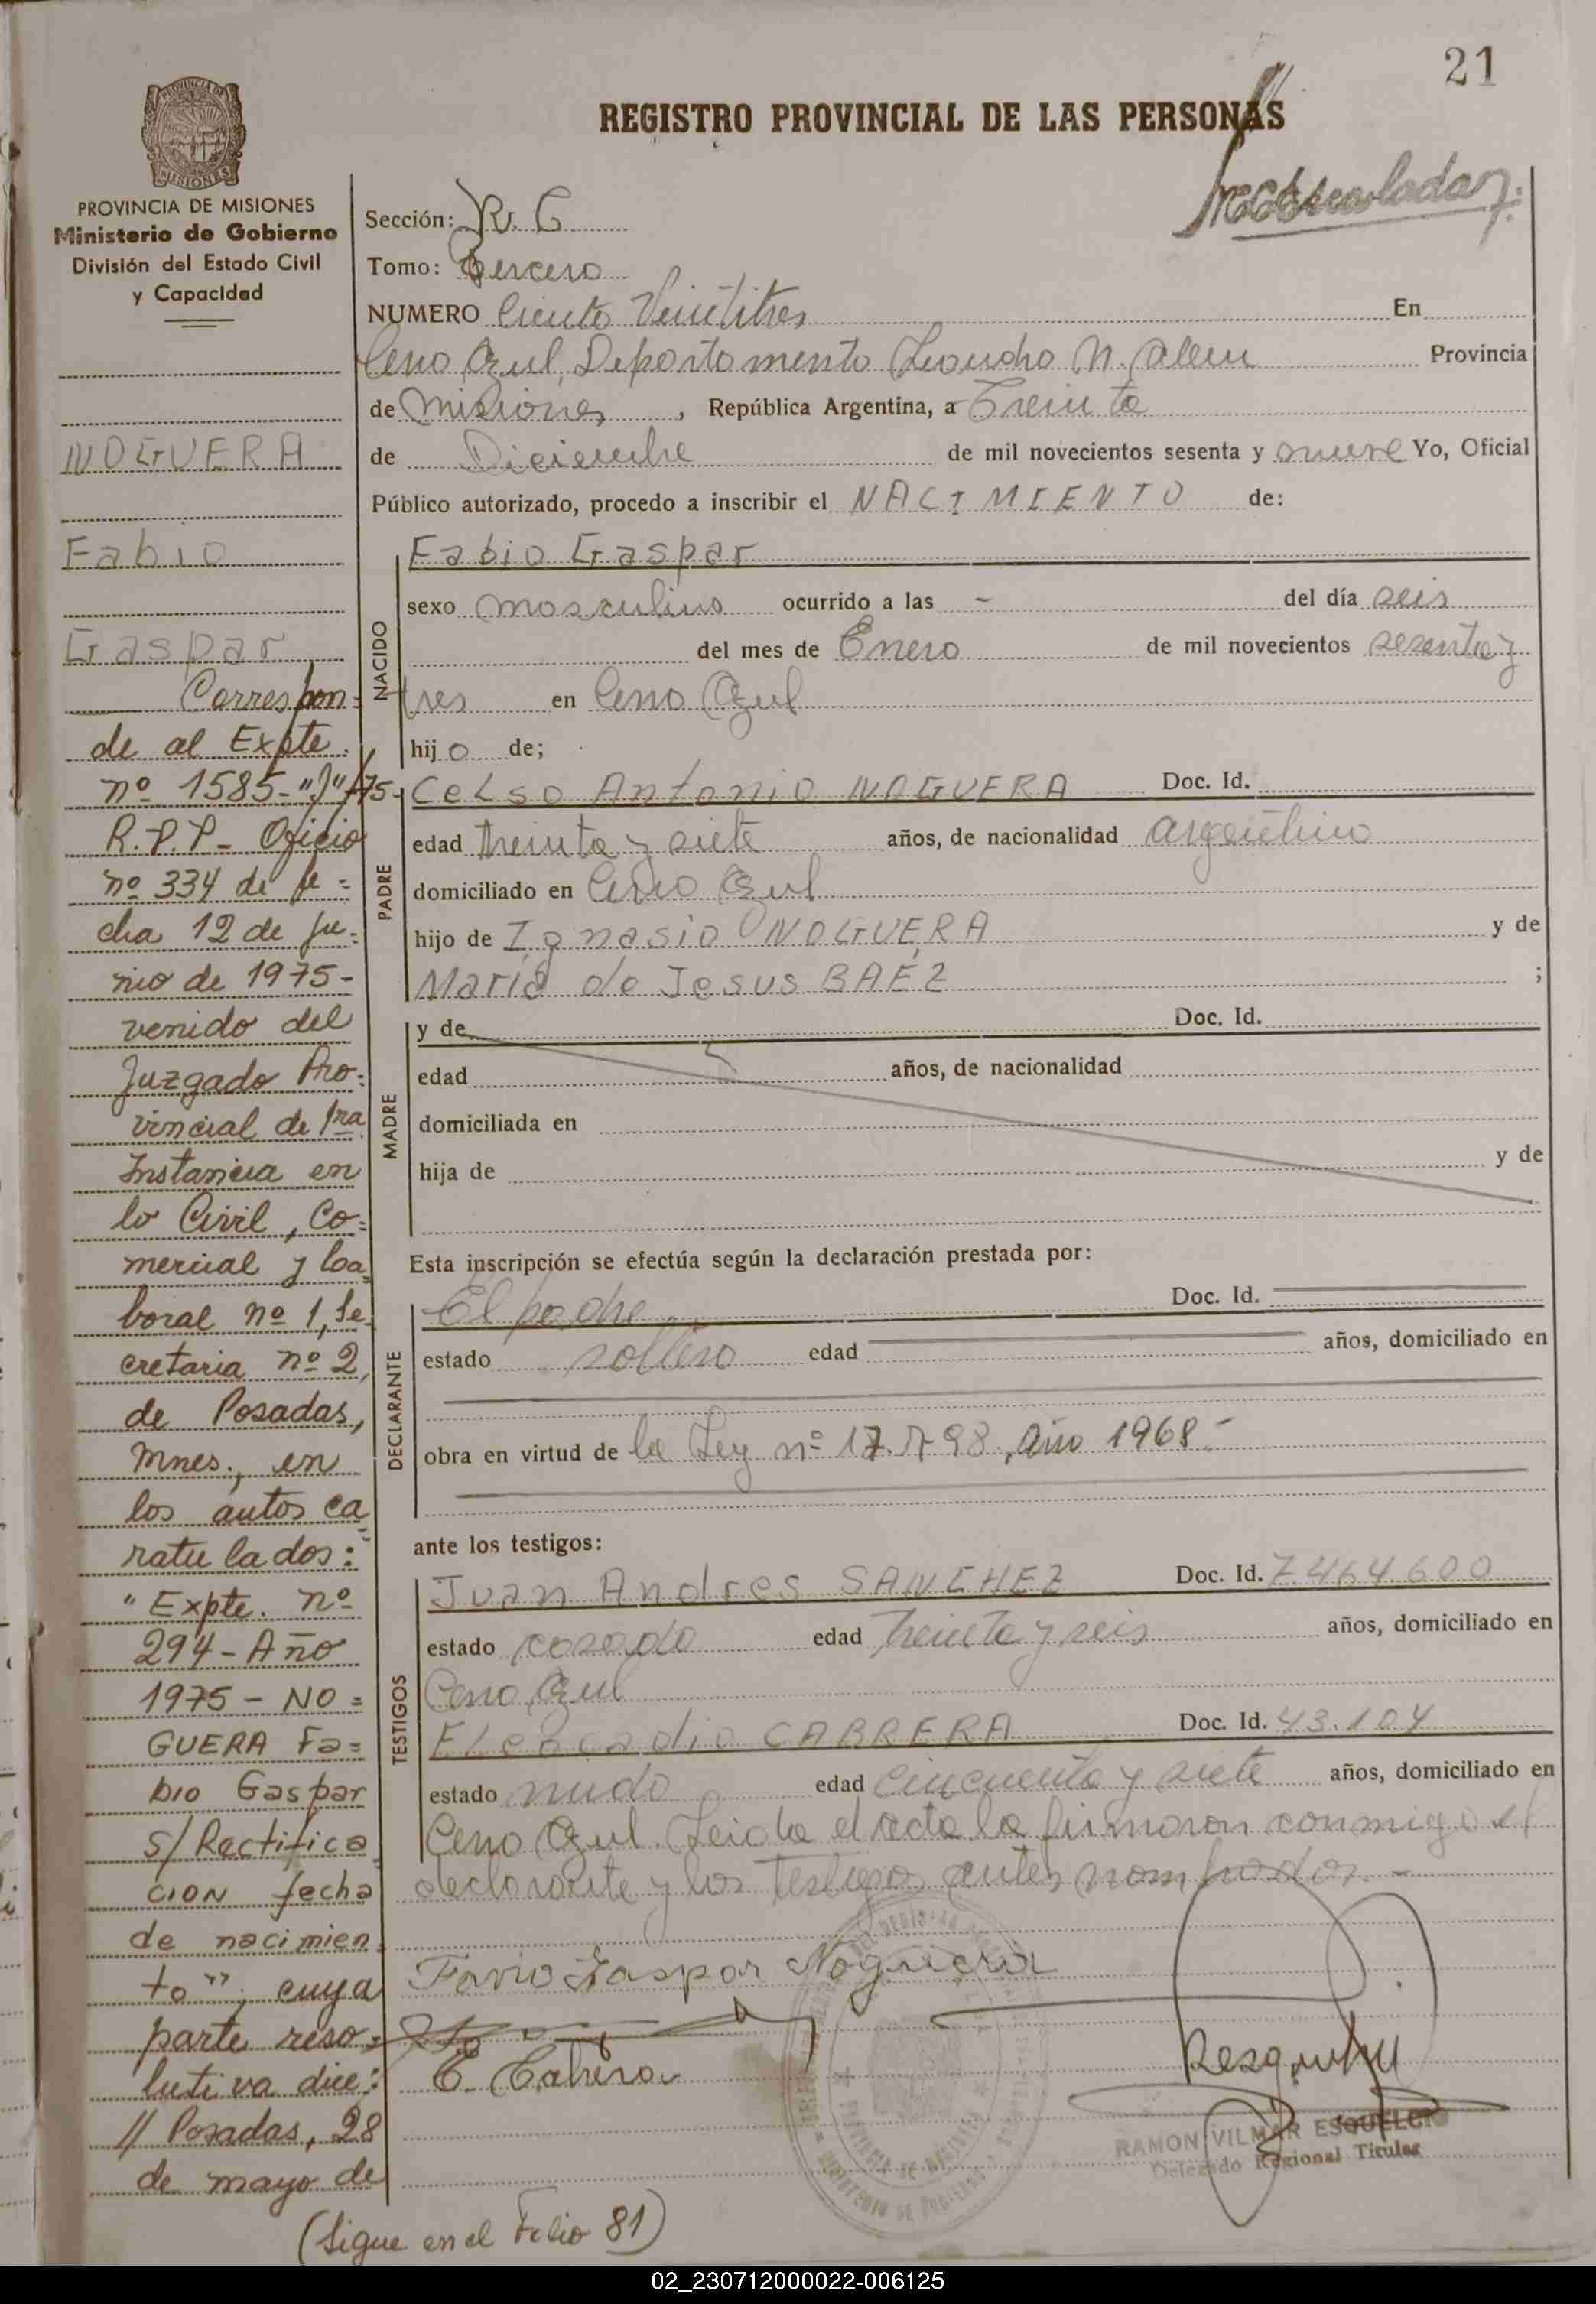 21
REGISTRO PROVINCIAL DE LAS PERSONAS
PROVINCIA DE MISIONES
Ministerio de Gobierno
División del Estado Civil
y Capacidad
NOGUERA
Fabio
Gaspar
Correspon=
de al Expte.
nº 1585-"J"/75-
R.P.P- Oficio
nº 334 de fe=
cha 12 de ju=
nio de 1975-
venido del
Juzgado Pro=
vincial de 1ra
Instancia en
lo Civil, Co=
mercial y Loa
boral nº 1, Se
cretaria nº 2,
de Posadas,
Mnes., en
los autos ca
ratulados:
"Expte. nº
294 - Año
1975 - NO=
GUERA Fa=
bio Gaspar
s/ Rectifica
CION fecha
de nacimien
to", cuya
parte reso=
lutiva dice:
// Posadas, 28
de mayo de
(Sigue en el Folio 81)
Sección: R. C
Tomo: Tercero
NUMERO Ciento Veintitres En
Cerro Azul, Departamento Leandro N. Alem Provincia
de Misiones, República Argentina, a Treinta
de Diciembre de mil novecientos sesenta y nueve Yo, Oficial
Público autorizado, procedo a inscribir el NACIMIENTO de:
NACIDO
Fabio Gaspar
sexo masculino ocurrido a las - del día seis
del mes de Enero de mil novecientos sesenta y
tres en Cerro Azul
hijo de;
PADRE
Celso Antonio NOGUERA Doc. Id.
edad treinta y siete años, de nacionalidad argentino
domiciliado en Cerro Azul
hijo de Ignasio NOGUERA y de
Maria de Jesus BAEZ ;
MADRE
y de Doc. Id.
edad años, de nacionalidad
domiciliada en
hija de y de
Esta inscripción se efectúa según la declaración prestada por:
DECLARANTE
El padre Doc. Id.
estado soltero edad años, domiciliado en
obra en virtud de la Ley nº 17. año 1968-
ante los testigos:
TESTIGOS
Juan Andres SANCHEZ Doc. Id. 7.464.600
estado casado edad treinta y seis años, domiciliado en
Cerro Azul
CABRERA Doc. Id. 43.104
estado viudo edad cincuenta y siete años, domiciliado en
Cerro Azul. Leida el acta la firmaron conmigo el
declarante y los testigos antes nombrados. -
Favio Gaspar Noguera
E. Cabrera
RAMON VILMAR
Delegado Regional Titular
02_230712000022-006125